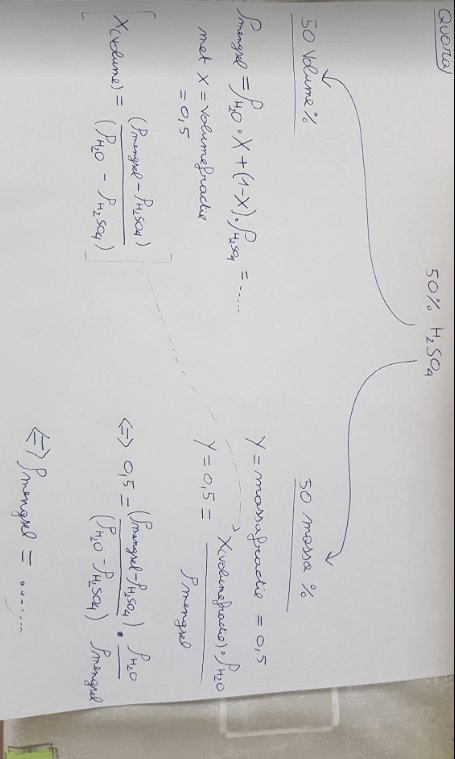 Quora
50% H₂SO₄
50 volume %
ρmengsel = ρH₂O · X + (1-X) · ρH₂SO₄ = ......
met X = volumefractie
= 0,5
[ X(volume) = (ρmengsel - ρH₂SO₄) / (ρH₂O - ρH₂SO₄) ]
50 massa %
Y = massafractie = 0,5
Y = 0,5 = X(volumefractie) · ρH₂O / ρmengsel
<=> 0,5 = (ρmengsel - ρH₂SO₄) / (ρH₂O - ρH₂SO₄) · ρH₂O / ρmengsel
<=> ρmengsel = ......